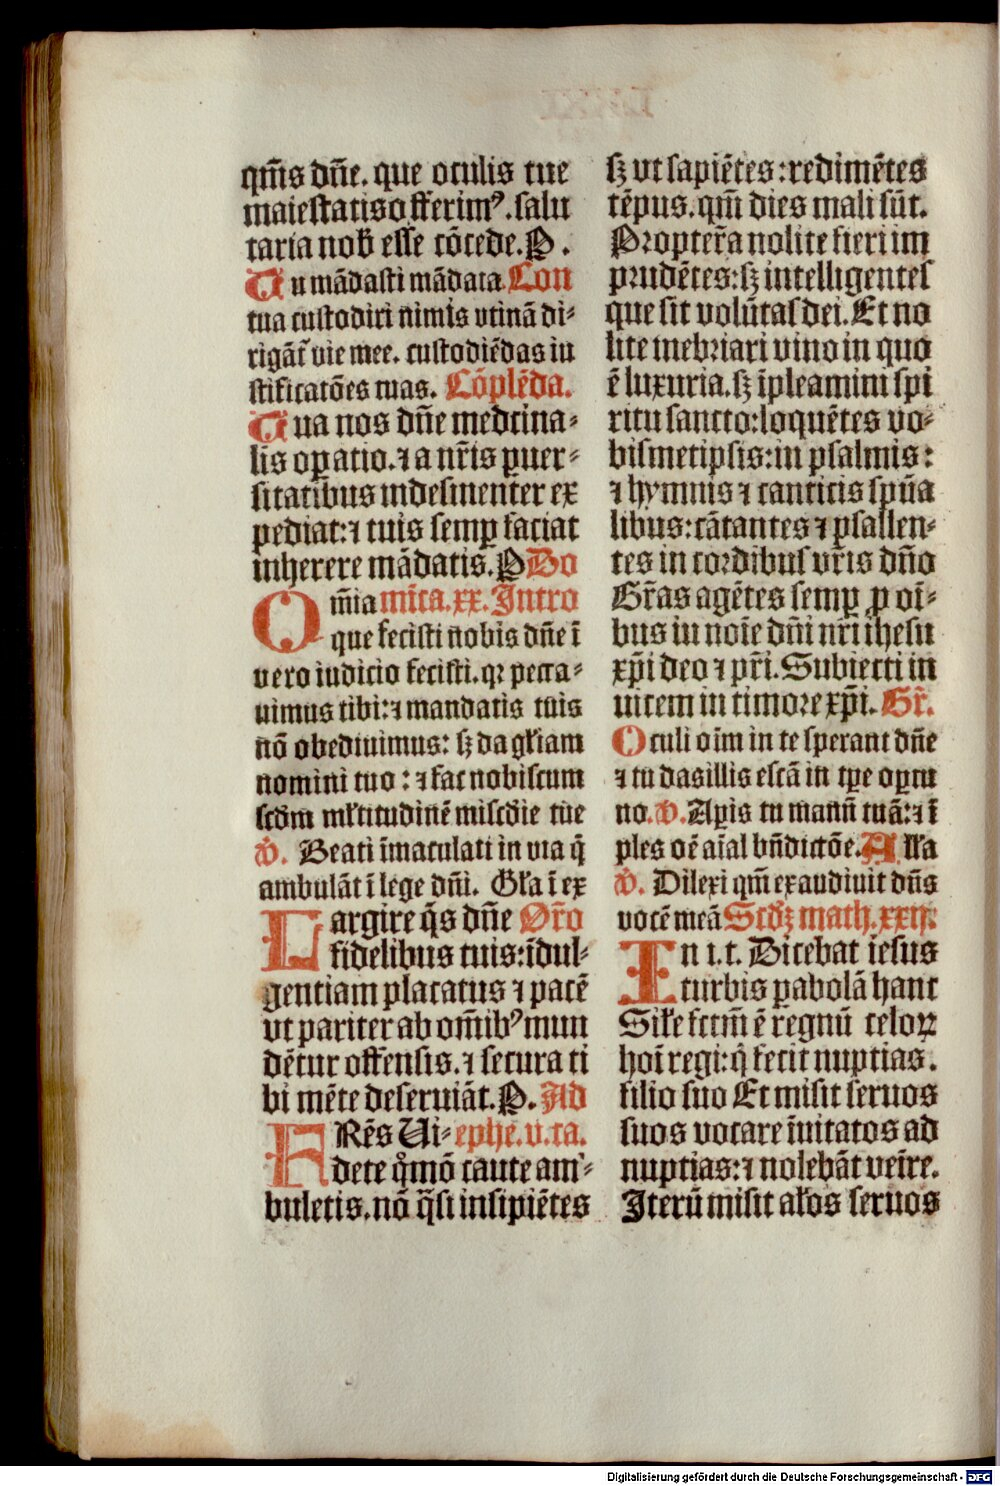 qm̄s dn̄e. que oculis tue
maiestatis offerimꝰ. salu
taria nob̄ esse cōcede. P.
Tu mādasti mādata Con
tua custodiri nimis vtinā di-
rigāt̄ vie mee. custodiēdas iu
stificatōes tuas. Cōplēda.
Tua nos dn̄e medicina-
lis oꝑatio. ⁊ a nr̄is ꝑuer-
sitatibus indesinenter ex
pediat: ⁊ tuis semꝑ faciat
inherere mādatis. P Do
Om̄ia mīca. xx. Intro
que fecisti nobis dn̄e ī
vero iudicio fecisti. qꝛ pecca-
uimus tibi: ⁊ mandatis tuis
nō obediuimus: sꝫ da gl̄iam
nomini tuo: ⁊ fac nobiscum
scd̄m ml̄titudinē misc̄die tue
v̄. Beati īmaculati in via q̄
ambulāt ī lege dn̄i. Gl̄a ī ex
Largire q̄s dn̄e Or̄o
fidelibus tuis: īdul-
gentiam placatus ⁊ pacē
vt pariter ab om̄ibꝰ mun
dētur offensis. ⁊ secura ti
bi mēte deseruiāt. P. Ad
FRēs Ui- ephe. v. ca.
dete qͦmō caute am-
buletis. nō q̄si insipiētes
sꝫ vt sapiētes: redimētes
tēpus. qm̄ dies mali sūt.
Propter̄a nolite fieri im
prudētes: sꝫ intelligentes
que sit volūtas dei. Et no
lite inebriari vino in quo
ē luxuria. sꝫ īpleamini spi
ritu sancto: loquētes vo-
bismetipsis: in psalmis:
⁊ hymnis ⁊ canticis spūa
libus: cātantes ⁊ psallen-
tes in cordibus vr̄is dn̄o
Gr̄as agētes semꝑ ꝓ oī-
bus in noīe dn̄i nr̄i ihesu
xp̄i deo ⁊ pr̄i. Subiecti in
uicem in timore xp̄i. Gr̄.
Oculi oīm in te sperant dn̄e
⁊ tu das illis escā in tꝑe oꝑtu
no. v̄. Aꝑis tu manū tuā: ⁊ ī
ples oē aīal bn̄dictōe. All̄a
v̄. Dilexi qm̄ exaudiuit dn̄s
vocē meā Scd̄ꝫ math. xxij.
In i. t. Dicebat iesus
turbis ꝑabolā hanc
Sil̄e fctm̄ ē regnū celoꝝ
hoī regi: q̄ fecit nuptias.
filio suo Et misit seruos
suos vocare īuitatos ad
nuptias: ⁊ nolebāt veīre.
Iterū misit al̄os seruos
Digitalisierung gefördert durch die Deutsche Forschungsgemeinschaft - DFG